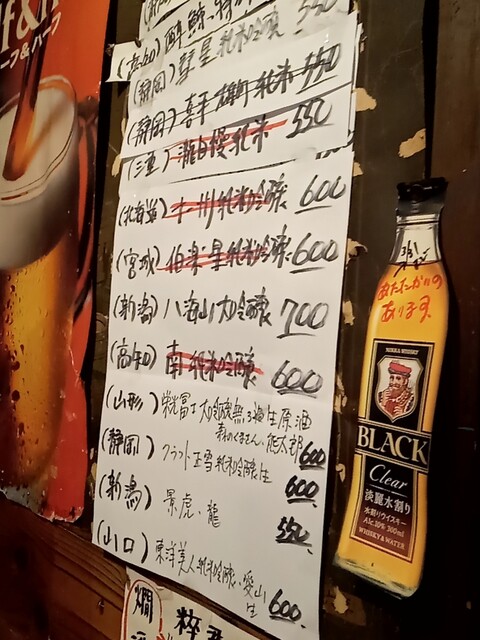 (静岡) 彗星 純米吟醸 550
(静岡) 喜平 雄町 純米 550
(三重) 瀧自慢 純米 550
(北海道) 純米吟醸 600
(宮城) 伯楽星 純米吟醸 600
(新潟) 八海山 大吟醸 700
(高知) 南 純米吟醸 600
(山形) 栄光冨士 大吟醸 無ろ過生原酒
森のくまさん、熊太郎 600
(静岡) クラフト正雪 純米吟醸 生 600
(新潟) 景虎・龍 550
(山口) 東洋美人 純米吟醸・愛山
生 600
燗
粋
ーフ&ハーフ
あたたかいの
あります
NIKKA WHISKY
BLACK
Clear
淡麗水割り
水割りウイスキー
Alc.10% 300ml
WHISKY & WATER